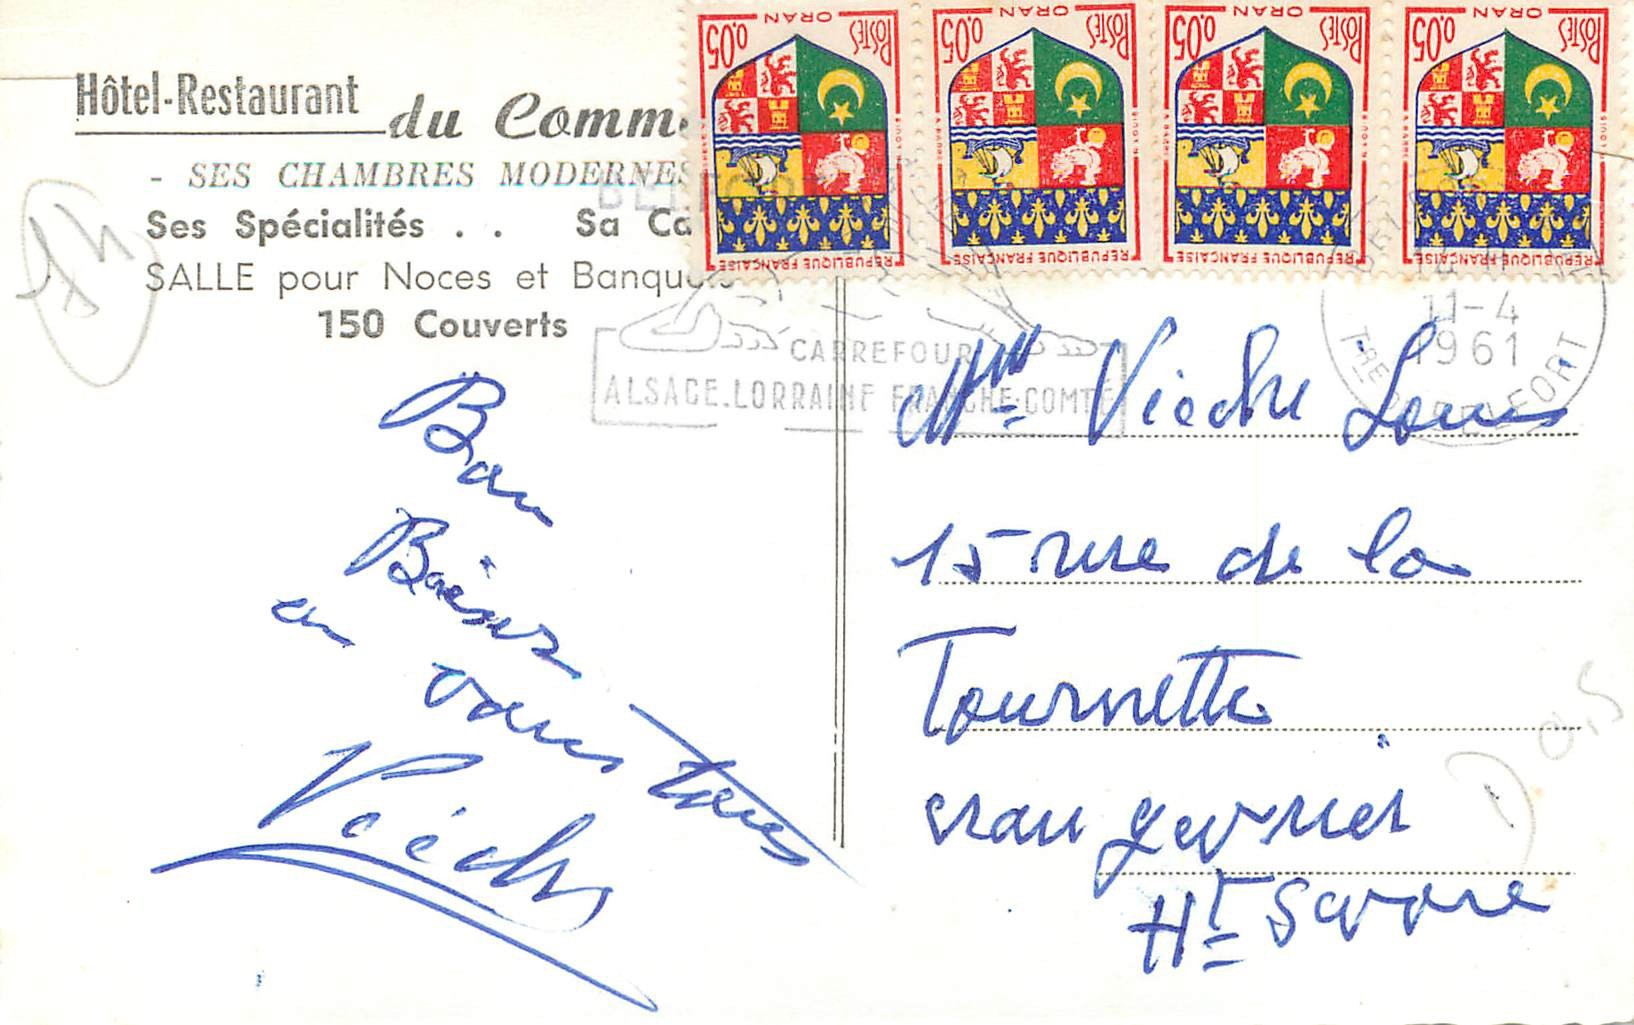 Hôtel-Restaurant du Comm
- SES CHAMBRES MODERNES
Ses Spécialités . . Sa Ca
SALLE pour Noces et Banqu
150 Couverts
POSTES 0,05
ORAN
REPUBLIQUE FRANÇAISE
POSTES 0,05
ORAN
REPUBLIQUE FRANÇAISE
POSTES 0,05
ORAN
REPUBLIQUE FRANÇAISE
POSTES 0,05
ORAN
REPUBLIQUE FRANÇAISE
BELFORT
CARREFOUR
ALSACE.LORRAINE FRANCHE-COMTÉ
11-4
1961
BELFORT
Bon
Baiser
a
vous tous
Viéchi
Louis
15 rue de la
Tournette
cran gevrier
Hte Savoie